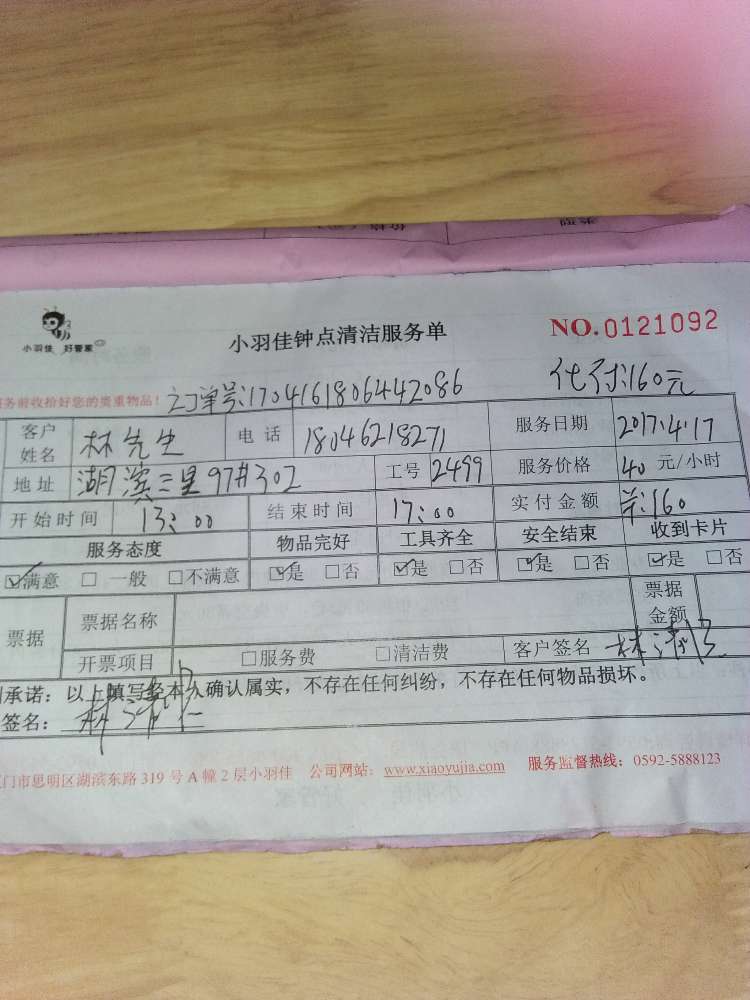 小羽佳 好管家
小羽佳钟点清洁服务单
NO.0121092
务前收拾好您的贵重物品!
订单号:170416180644 2086
代付:160元
客户姓名 林先生 电话 18046218271 服务日期 2017.4.17
地址 湖滨三里97#302 工号 2499 服务价格 40 元/小时
开始时间 13:00 结束时间 17:00 实付金额 ¥:160
服务态度 物品完好 工具齐全 安全结束 收到卡片
☑满意 □一般 □不满意 ☑是 □否 ☑是 □否 ☑是 □否 ☑是 □否
票据 票据名称 票据金额
开票项目 □服务费 □清洁费 客户签名
承诺:以上填写经本人确认属实,不存在任何纠纷,不存在任何物品损坏。
签名:
门市思明区湖滨东路 319 号 A 幢 2 层小羽佳 公司网站:www.xiaoyujia.com 服务监督热线:0592-5888123